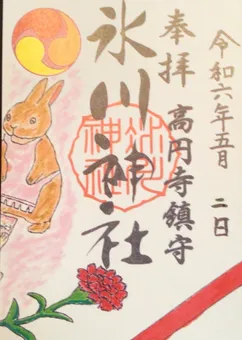 令和六年五月二日
奉拝 高円寺鎮守
氷川神社